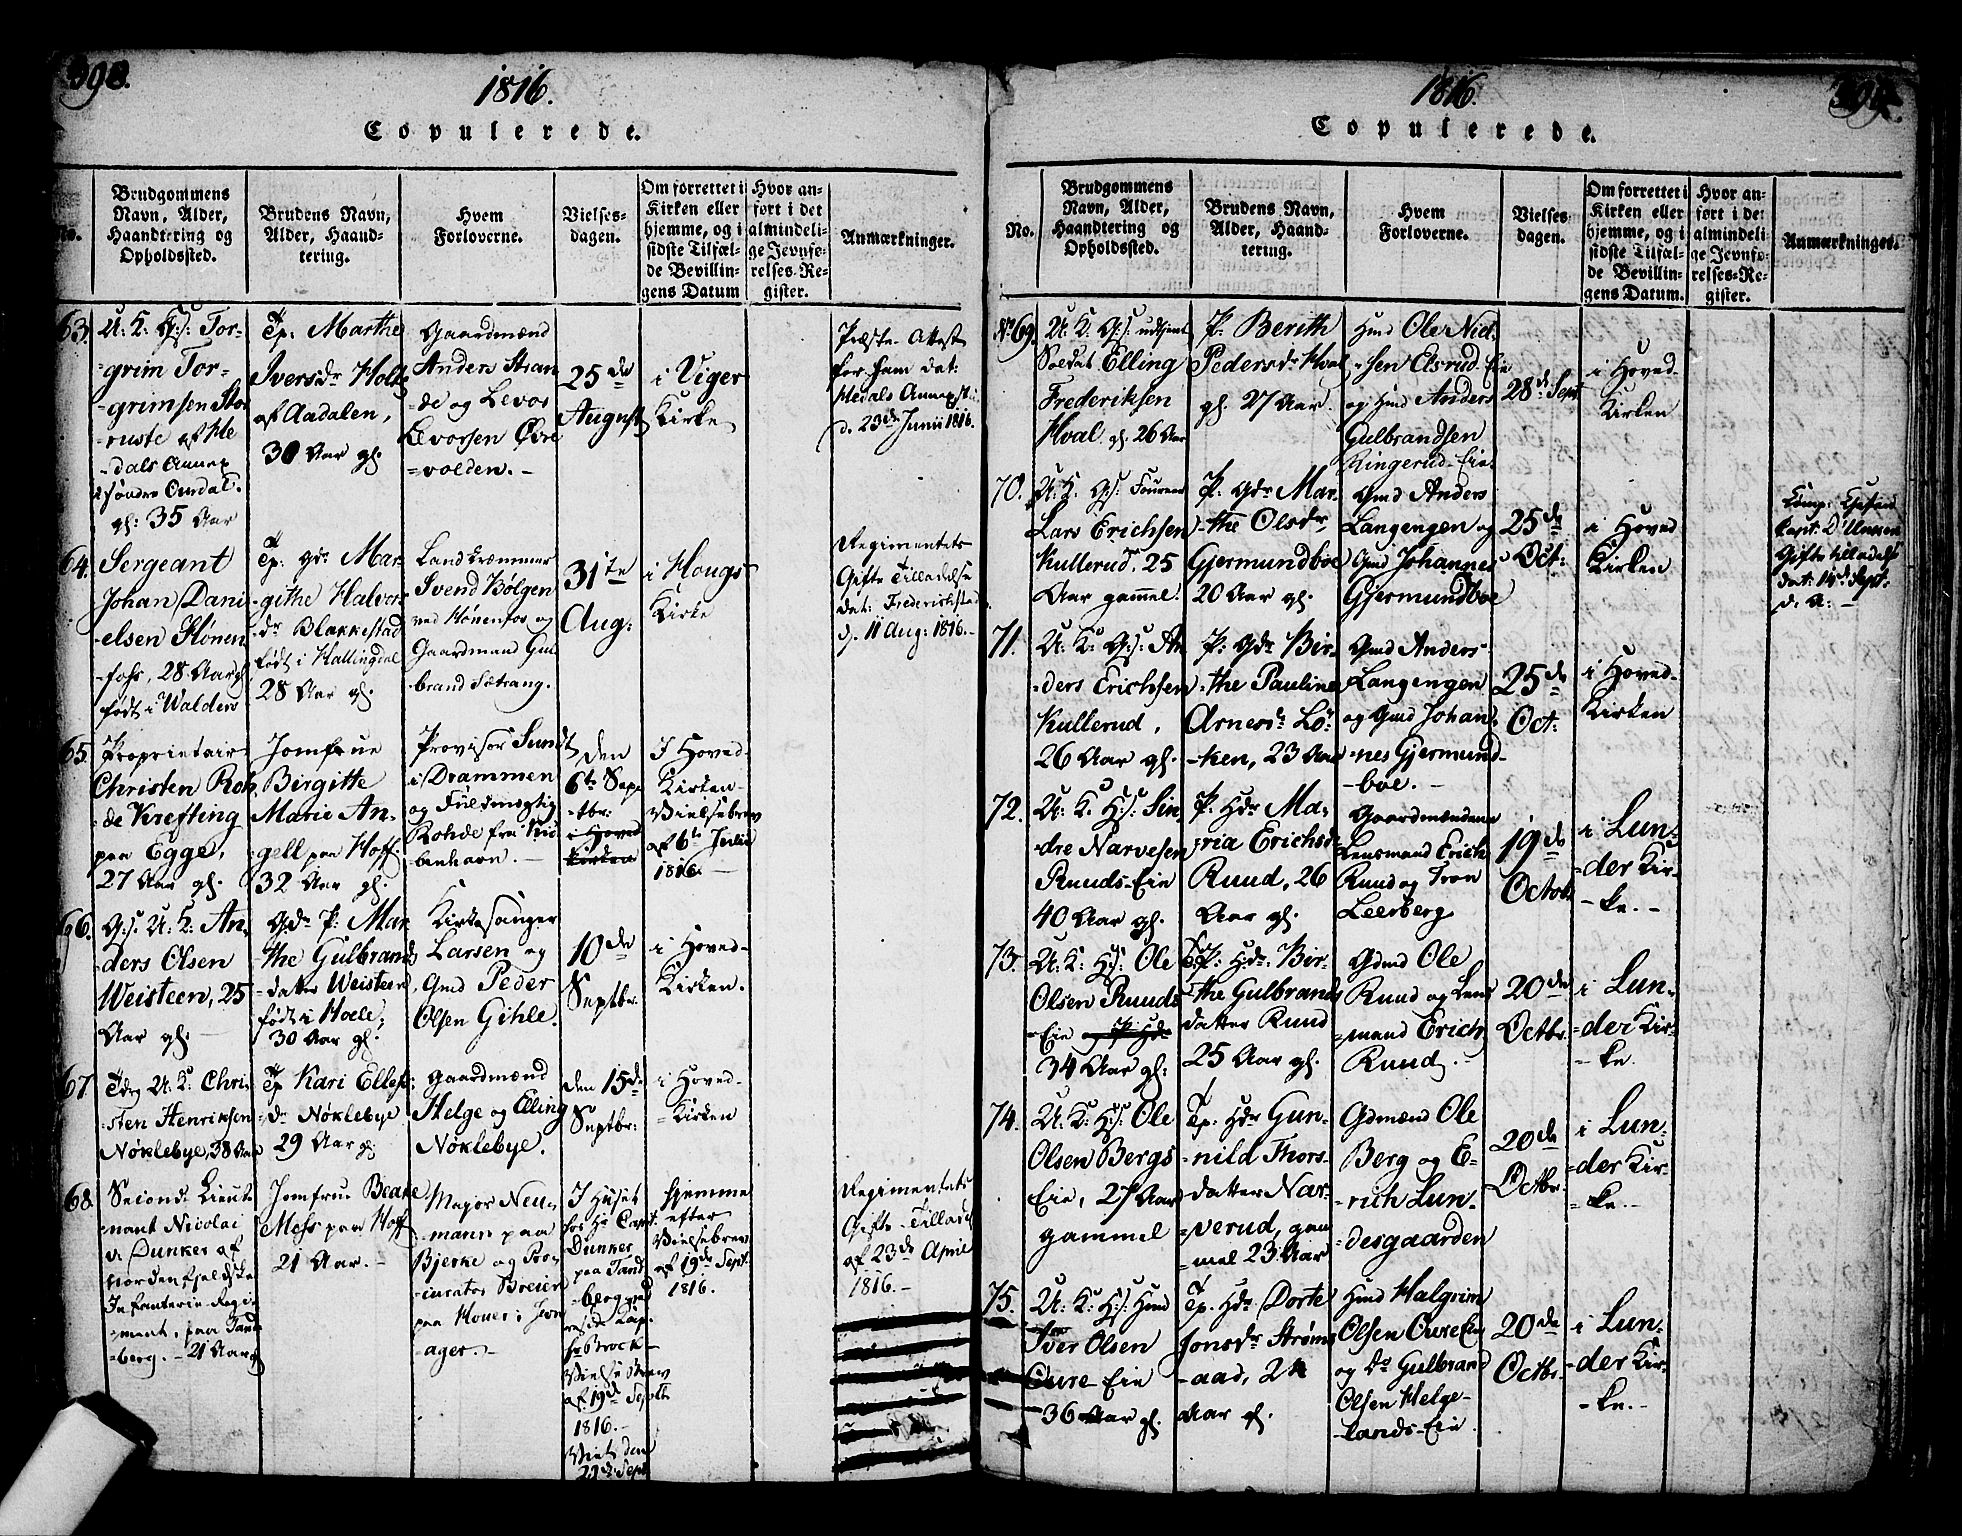 390.
1816.
Copulerede.
No.
Brudgommens
Navn, Alder,
Haandtering og
Opholdssted.
Brudens Navn,
Alder, Haand-
tering.
Hvem
Forloverne.
Vielses-
dagen.
Om forrettet i
Kirken eller
hjemme, og i
sidste Tilfæl-
de Bevillin-
gens Datum
Hvor an-
ført i det
almindeli-
ge Jevnfø-
relses-Re-
gister.
Anmærkninger.
63.
U: K: G:s: Tor-
grim Tor-
grimsen Stor
ruste af He
dals Annex
i søndre Ourdal.
gl: 35 Aar
Tp: Marthe
Iversdr Holte
af Aadalen,
30 Aar gl.
Gaardmænd
Anders Stran
de og Levor
Levorsen Øvre
volden.-
25de
August
i Viger
Kirke
Præste Attest
for ham dat:
Hedals Annex
d. 23de Junii 1816.
64.
Sergeant
Johan Dani
elsen Hønen
fohs, 28 Aar gl
født i Walders
Tp: Gdr Mar
githe Halvor
dr Blakkestad
født i Hallingdal
28 Aar gl.
Landkræmmer
Svend Bølgen
ved Hønenfos og
Gaardmand Gul
brand Sætrang.
31te
Aug:
i Hougs
Kirke
Regimentets
Gifte Tilladelse
dat: Frederichstad
d. 11 Aug: 1816.-
65.
Proprietair
Christen Roh
de Krefting
paa Egge,
27 Aar gl.
Jomfrue
Birgitte
Marie An-
gell paa Hoff
32 Aar gl.
Provisor Sundt
i Drammen
og Fuldmægtig
Rohde fra Kiø
benhavn.-
den
6te Sept
tbr:
i Hoved
Kirken
I Hoved-
Kirken
Vielsebrev
af 6te Julii
1816.
66.
G:s: U: K: An-
ders Olsen
Weisteen, 25
Aar gl.
Gdr P: Mar
the Gulbrands
datter Weisteen
født i Hole,
30 Aar gl.
Kirkesanger
Larsen og
Gmd Peder
Olsen Gihle.
10de
Septbr.
i Hoved-
Kirken.
67.
U: K: Chri-
sten Henriksen
Nøklebye, 38 Aar
Tp Kari Ellefs
dr Nøklebye
29 Aar gl.
Gaardmænd
Helge og Elling
Nøklebye.
den 15de
Septbr:
i Hoved-
Kirken
68.
Second Lieut
nant Nicolai
v: Dunker af
nordenfjeldske
Infanterie-Regi-
ment, paa Tand
berg.- 21 Aar gl
Jomfrue Beate
Mehs paa Hoff
21 Aar.-
Major Neu-
mann paa
Bjerke og Pro-
curator Breien
paa Hover i Jevn
ager.-
I Huset
hos Hr Capt:
Dunker
paa Tand
berg
Hr Brock
Vielse Brev
af 19de Septb
1816.-
Viet den
29de Sept
hjemme
efter
Vielsebrev
af 19de Sept.
1816.
Regimentets
Gifte-Tilladel
af 23de April
1816.-
1816.
391.
Copulerede.
No.
Brudgommens
Navn, Alder,
Haandtering og
Opholdssted.
Brudens Navn,
Alder, Haand-
tering.
Hvem
Forloverne.
Vielses
dagen.
Om forrettet i
Kirken eller
hjemme, og i
sidste Tilfæl-
de Bevillin-
gens Datum.
Hvor an-
ført i det
almindeli
ge Jevnfø-
relses-Re-
gister.
Anmærkninger.
No 69.
U: K: G:s: udtjent
Soldat Elling
Frederiksen
Hval gl. 26 Aar
P: Berith
Pedersdr Hval
gl. 27 Aar.
Hmd Ole Niel-
sen Elsrud-Eie
og Hmd Anders
Gulbrandsen
Ringerud-Eie.
28de Sept
i Hoved-
Kirken
70.
U: K: G:s: Foureer
Lars Erichsen
Kullerud. 25
Aar gammel.
P: Gdr Mar-
the Olsdr
Gjermundboe
20 Aar gl.
Gmd Anders
Langengen og
Gmd Johannes
Gjermundboe
25de
Oct:
i Hoved
Kirken
71.
U: K: G:s: An
ders Erichsen
Kullerud,
26 Aar gl.
P: Gdr Bir-
the Pauline
Arnesdr Lø-
ken, 23 Aar
Gmd Anders
Langengen
og Gmd Johan
nes Gjermund-
boe.-
25de
Oct:
i Hoved-
Kirken
72.
U: K: H:s: Sin-
dre Narvesen
Ruuds-Eie
40 Aar gl.
P: Hdr Ma-
ria Erichsdr
Ruud, 26
Aar gl.
Gaardmændene
Lensmand Erich
Ruud og Tron
Leerberg
19de
Octob.
i Lun-
der Kir-
ke.-
73.
U: K: H:s: Ole
Olsen Ruuds
Eie
34 Aar gl:
P: Hdr: Bir-
the Gulbrands
datter Ruud
25 Aar gl.
Gdmd Ole
Ruud og Lens
mand Erich
Ruud.
20de
Octbr.
i Lun-
der Kir-
ke.
74.
U: K: H:s: Ole
Olsen Bergs
Eie, 27 Aar
gammel
Tp: Hdr Gun-
nild Thors-
datter Nar-
verud, gam
mel 23 Aar
Gdmænd Ole
Berg og E-
rich Lun-
desgaarden
20de
Octbr.
i Lun-
der Kir-
ke.-
75.
U: K: H:s: Hmd
Iver Olsen
Oure-Eie
36 Aar gl.
Tp. Hdr Dorte
Jonsdr Strøms
aad, 24
Aar gl.
Hmd Halgrim
Olsen Oure Eie
og Do Gulbrand
Olsen Helge-
lands-Eie
20de
Octbr.
i Lun-
der Kir-
ke.-